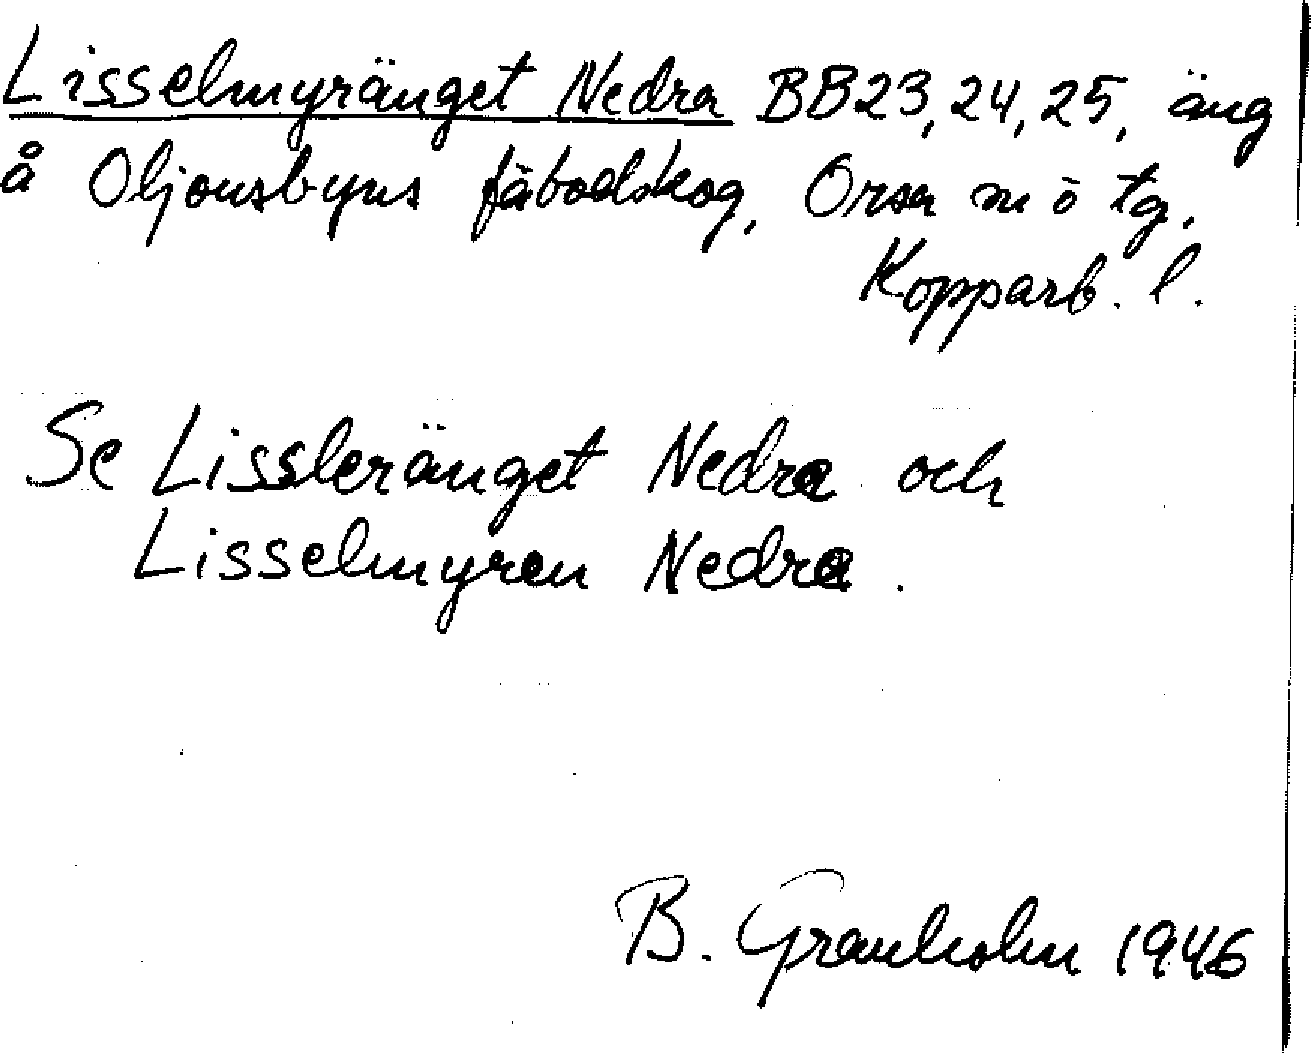 Lisselmyränget Nedra BB23, 24, 25, äng
å Oljonsbyns fäbodskog, Orsa m ö tg.
Kopparb. l.
Se Lissleränget Nedra och
Lisselmyren Nedra.
B. Granholm 1946